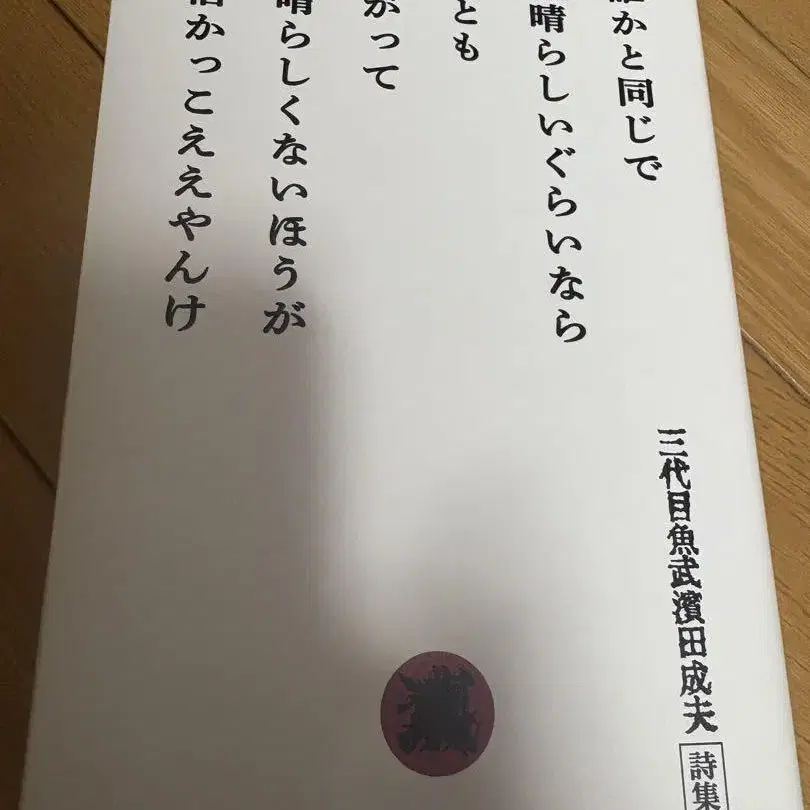 誰かと同じで
晴らしいぐらいなら
とも
がって
晴らしくないほうが
倍かっこええやんけ
三代目魚武濱田成夫
詩集